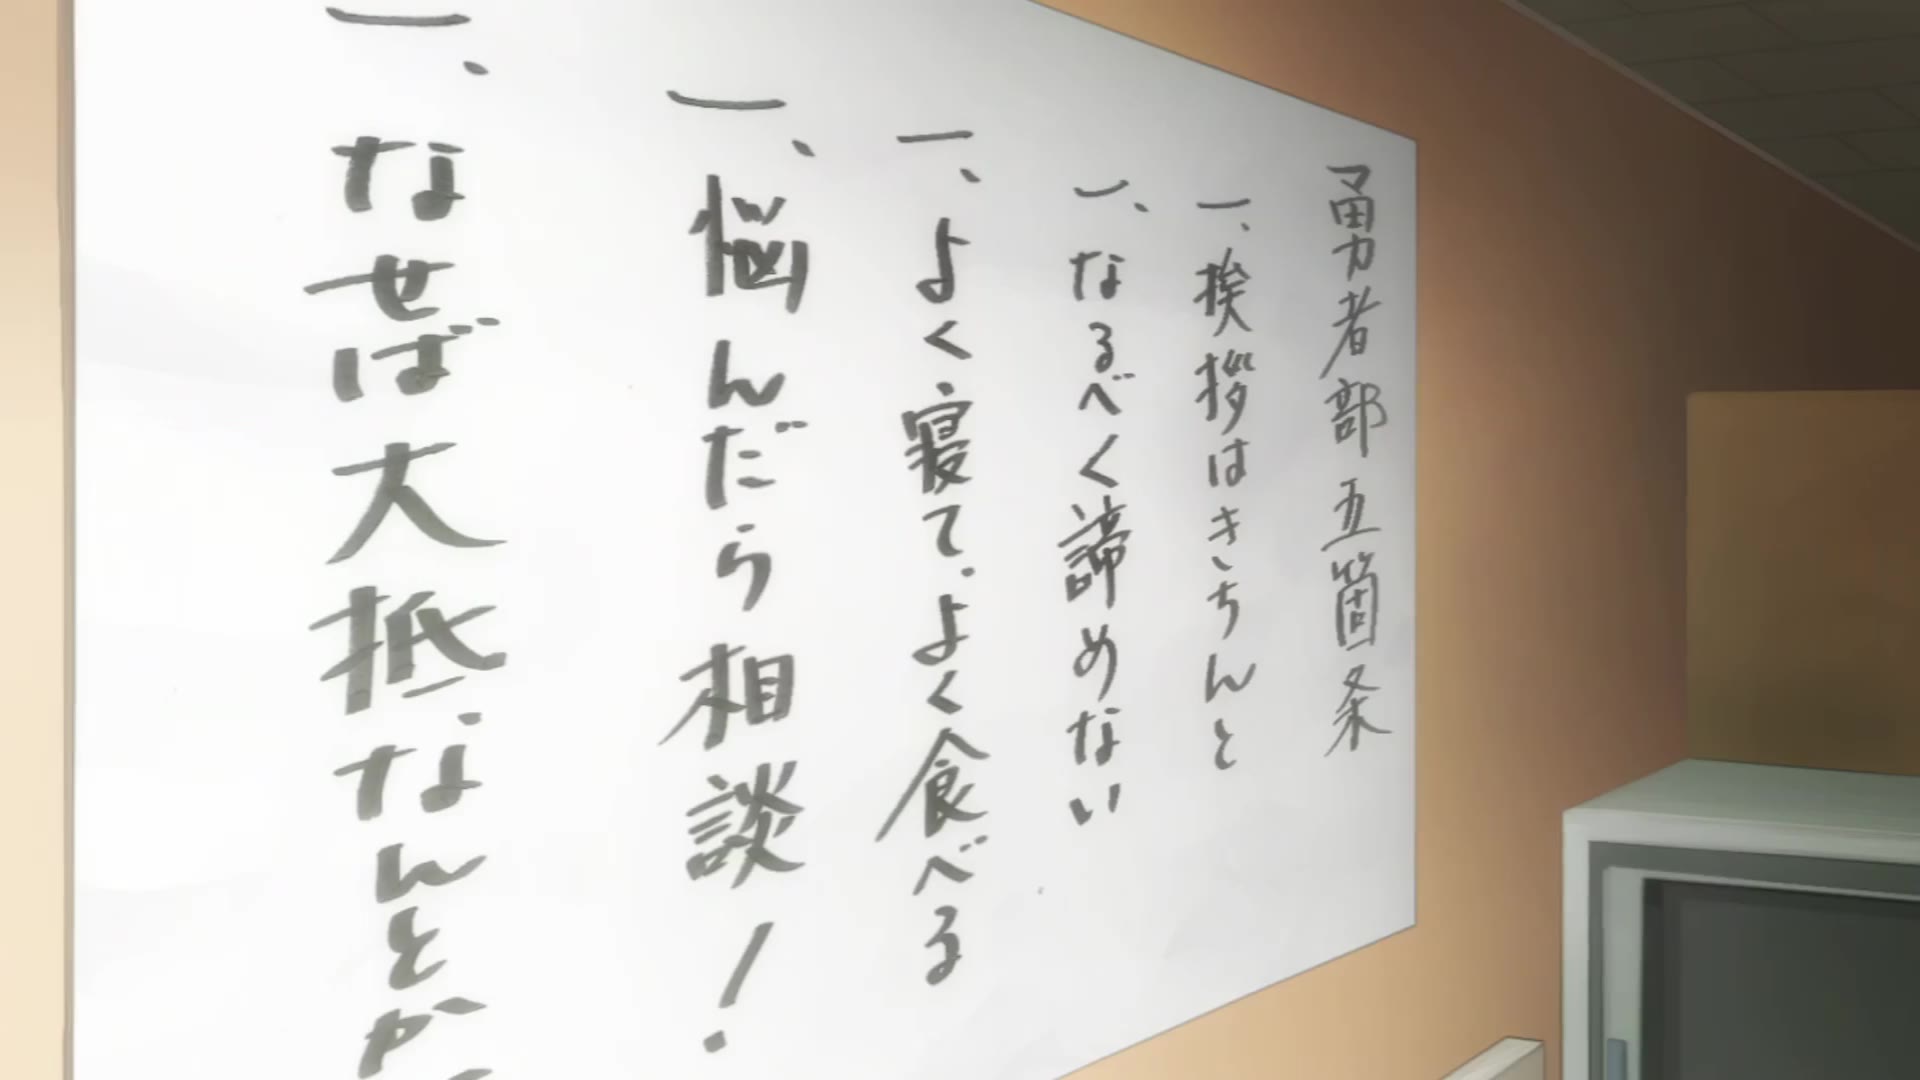 勇者部五箇条
一、挨拶はきちんと
一、なるべく諦めない
一、よく寝て、よく食べる
一、悩んだら相談！
一、なせば大抵なんとか